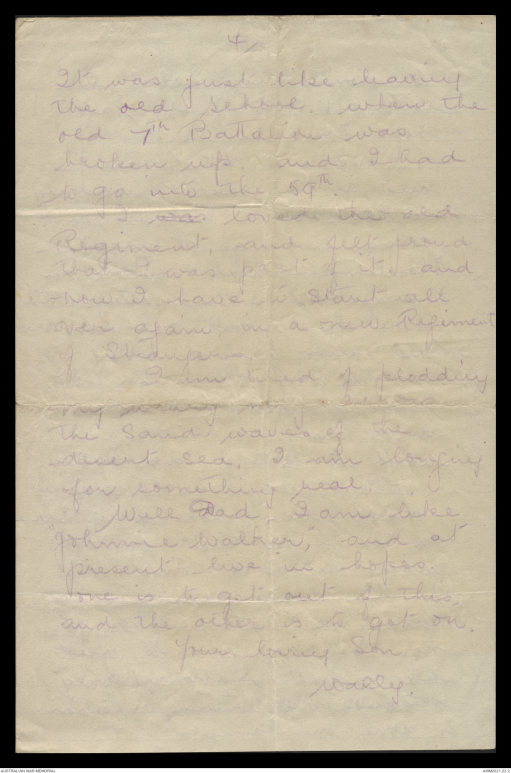 4/
It was just like leaving
the old school. when the
old 7th Battalion was
broken up. and I had
to go into the 59th.
I was loved the old
Regiment, and felt proud
that I was part of it. and
now I have to start all
over again, in a new Regiment
of Strangers.
I am tired of plodding
my weary way
the Sand waves of the
desert sea. I am longing
for something real.
Well Dad I am like
"Johnnie Walker," and at
present live in hopes.
one is to get out of this,
and the other is to "get on.
Your loving Son
Wally.
AUSTRALIAN WAR MEMORIAL